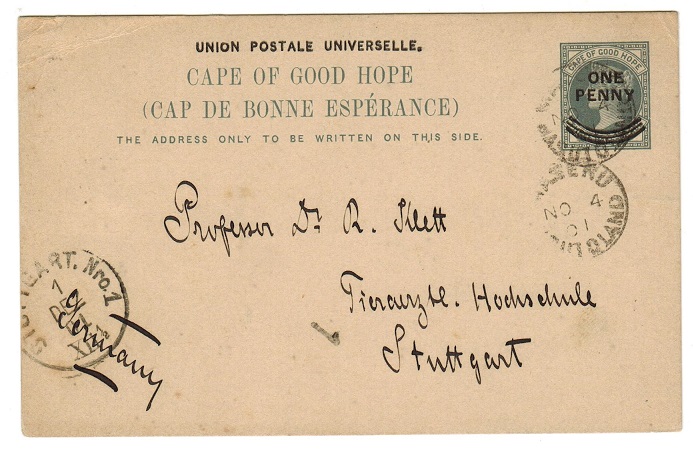 UNION POSTALE UNIVERSELLE.
CAPE OF GOOD HOPE
(CAP DE BONNE ESPÉRANCE)
THE ADDRESS ONLY TO BE WRITTEN ON THIS SIDE.
CAPE OF GOOD HOPE
ONE
PENNY
NO 4
01
Professor Dr. R. Klett
Tierarztl. Hochschule
Stuttgart
Germany
STUTTGART. Nro. 1